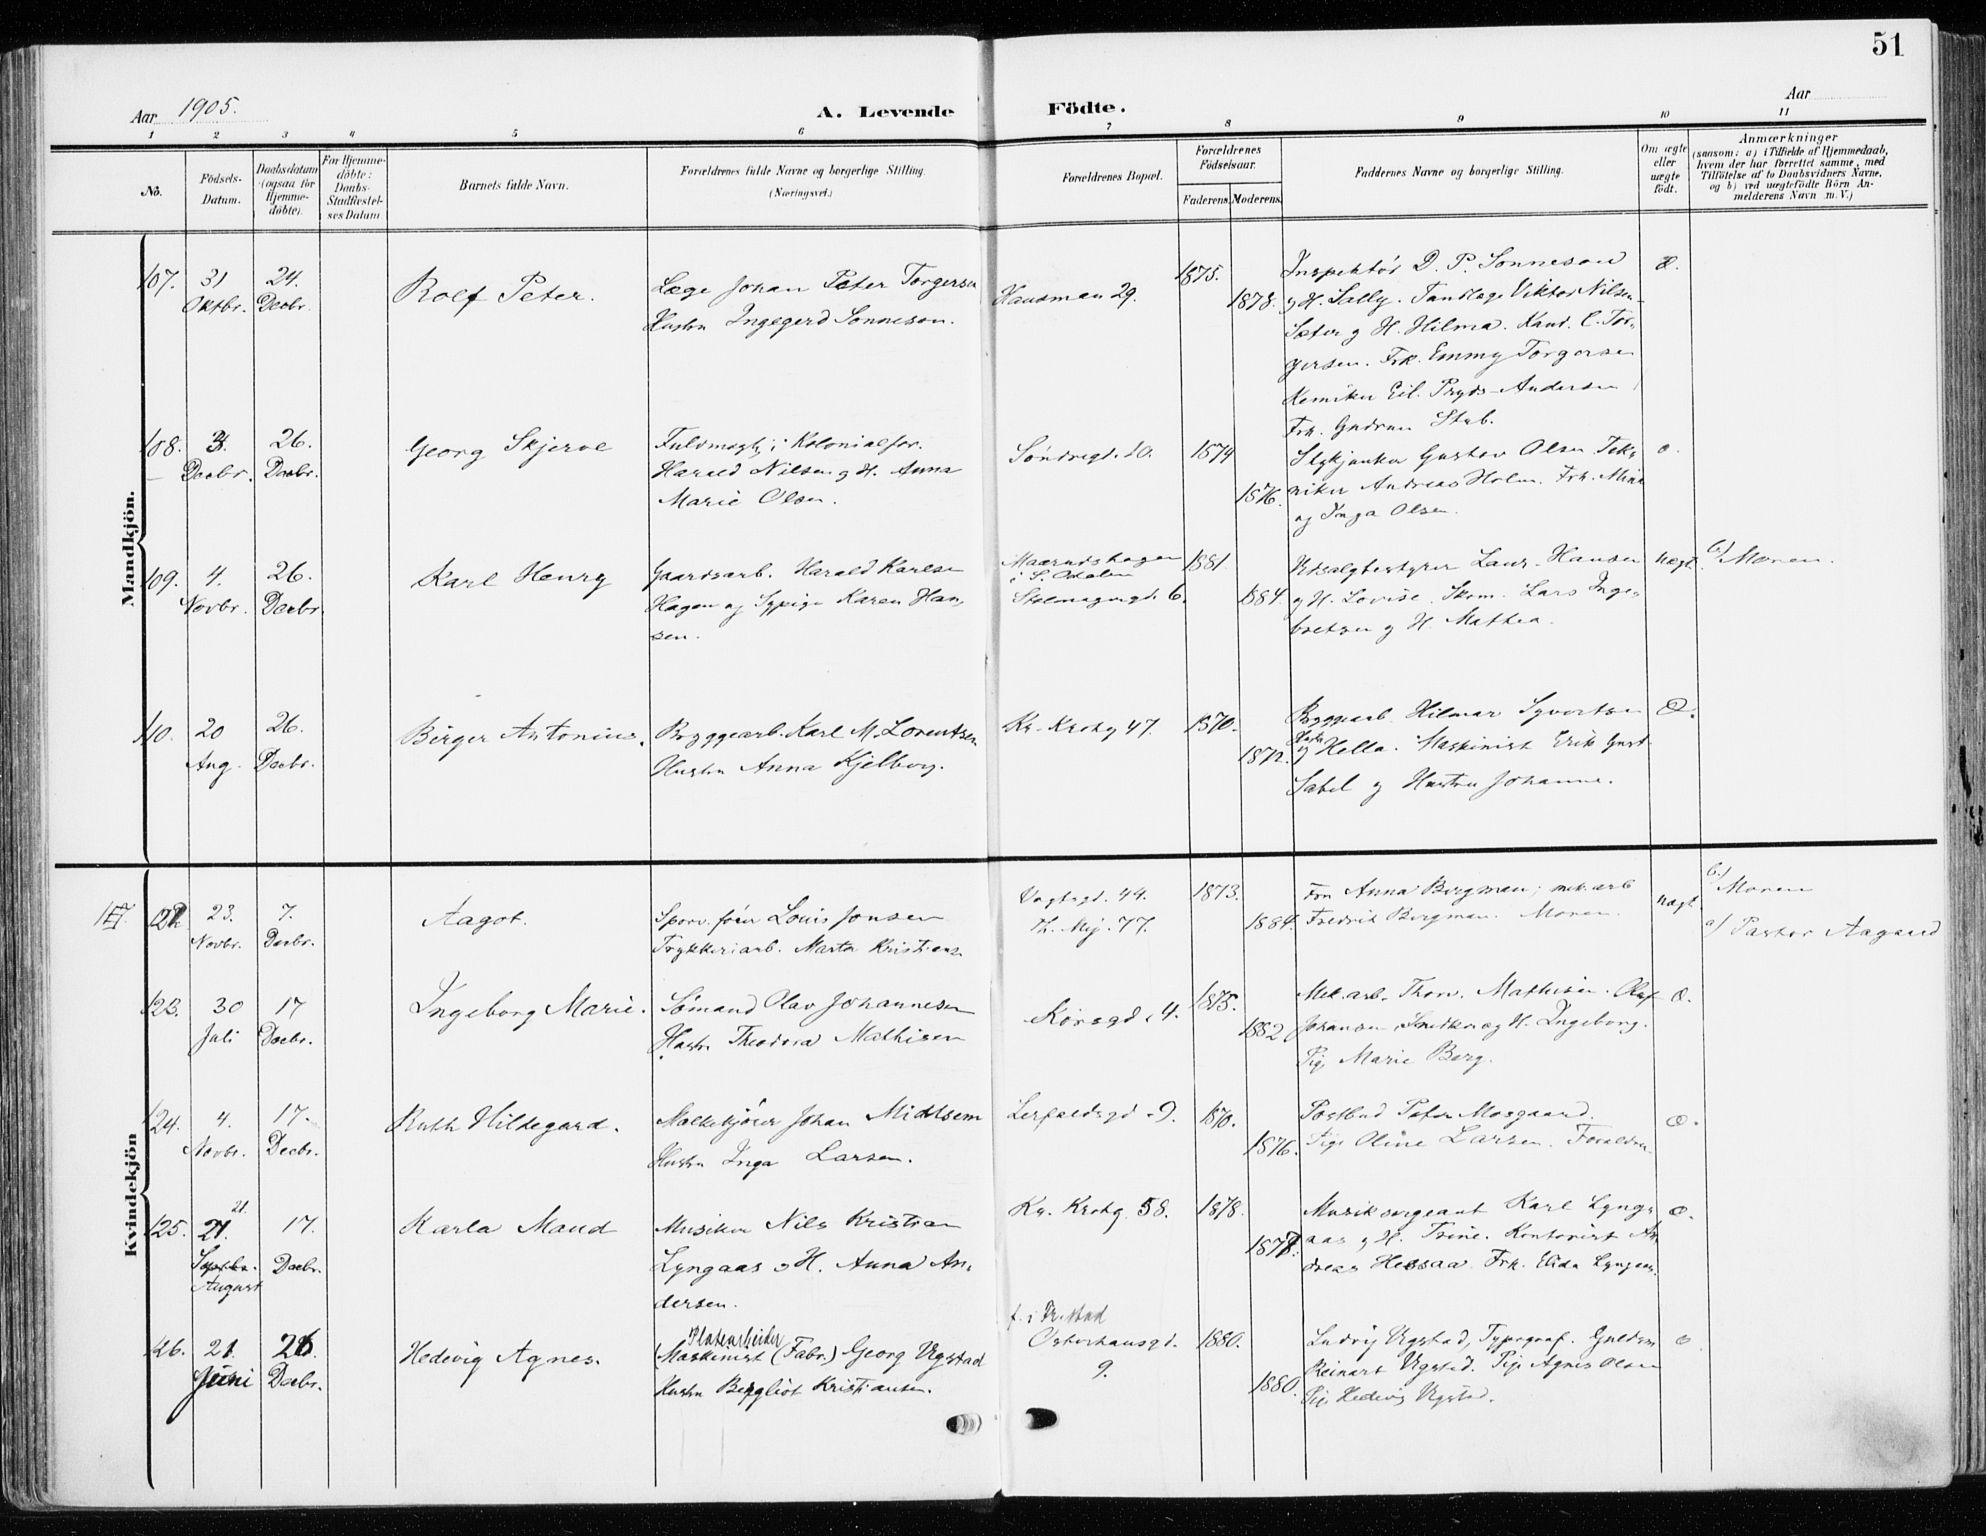 51
Aar 1905.
A. Levende Födte.
Aar
1 2 3 4 5 6 7 8 9 10 11
No.
Födsels-
Datum.
Daabsdatum
(ogsaa for
Hjemme-
döbte).
For Hjemme-
döbte:
Daabs-
Stadfæstel-
ses Datum
Barnets fulde Navn.
Forældrenes fulde Navne og borgerlige Stilling.
(Næringsvei.)
Forældrenes Bopæl.
Forældrenes
Födselsaar.
Faderens. Moderens.
Faddernes Navne og borgerlige Stilling.
Om ægte
eller
uægte
født.
Anmærkninger
(saasom: a) i Tilfælde af Hjemmedaab,
hvem der har forrettet samme, med
Tilföielse af to Daabsvidners Navne,
og b) ved uægtefödte Börn An-
melderens Navn m. V.)
Mandkjön.
107. 31 Oktbr. 24. Decbr.
Rolf Peter.
Læge Johan Peter Torgersen
Hustru Ingegerd Sonneson.
Hausman 29.
1875.
1878.
Inspektör D. P. Sonneson
og H. Sally. Tandlæge Viktor Nilsen-
Sæter og H. Hilma. Kand. C. Tor-
gersen. Frk. Emmy Torgersen
Kemiker Eil. Pryds-Andersen
Frk. Gudrun Stub.
Æ.
108. 3. Decbr. 26. Decbr.
Georg Skjerve
Fuldmægtig i Kolonialfor.
Harald Nilsen og H. Anna
Marie Olsen.
Söndregd. 10.
1874
1876.
Gustav Olsen. Tek-
niker Andreas Holm. Frk. Mina
og Inga Olsen.
109. 4. Novbr. 26. Decbr.
Karl Henry
Gaardsarb. Harald Karlsen
Hagen og Sypige Karen Han-
sen.
Maarudshagen
i S. Odalen
6.
1881
1884.
Udsalgbestyrer Laur. Hansen
og H. Lovise. Skom. Lars Inge-
bretsen og H. Mathea.
Uægt.
b/ Moren.
110. 20 Aug. 26. Decbr.
Birger Antonius.
Byggearb. Karl M. Lorentsen
Hustru Anna Kjelborg.
Kr. Krohg 47.
1870.
1872.
Byggearb. Hilmar Syvertsen
Hustru
og Hella. Maskinist Erik Gust.
Sabel og Hustru Johanne.
Æ.
Kvindekjön
122. 23. Novbr. 7. Decbr.
Aagot.
Sporv. fører Louis Jonsen
Trykkeriarb. Marta Kristians.
Vogtsgd. 44.
Th. Mej. 77.
1873.
1884.
Fru Anna Bergman; mek. arb
Fredrik Bergman. Moren.
Uægt.
b/ Moren
a/ Pastor Aagaard
123. 30 Juli 17 Decbr.
Ingeborg Marie.
Sömand Olav Johannesen
Hustr. Theodora Mathisen
Korsgd. 4.
1875.
1882
Mek. arb. Thorv. Mathisen. Olaf
Johansen, Snedker og H. Ingeborg.
Pig. Marie Berg.
Æ.
124. 4. Novbr. 17. Decbr.
Ruth Hildegard.
Melkekjörer Johan Midtsem
Hustru Inga Larsen.
Lerfaldsgd. 9.
1870.
1876.
Postbud Peter Mosgaard.
Pige Oline Larsen. Forældrene
Æ.
125. 21 21. Septbr. August 17. Decbr.
Karla Maud
Musiker Nils Kristian
Lyngaas og H. Anna An-
dersen.
Kr. Krohg. 58.
1878.
1877.
Musiksergeant Karl Lyng-
aas og H. Trine. Kontorist An-
dreas Hessaa. Frk. Elida Lyngaas.
Æ.
126. 21. Juni 26. Decbr.
Hedevig Agnes.
Platearbeider
Maskinist (Fabr.) Georg Ugstad
Hustru Bergliot Kristiansen.
Osterhausgd.
9.
1880.
1880.
Ludvig Ugstad, Typograf. Guldsm
Reinart Ugstad. Pige Agnes Olsen
Pige Hedevig Ugstad.